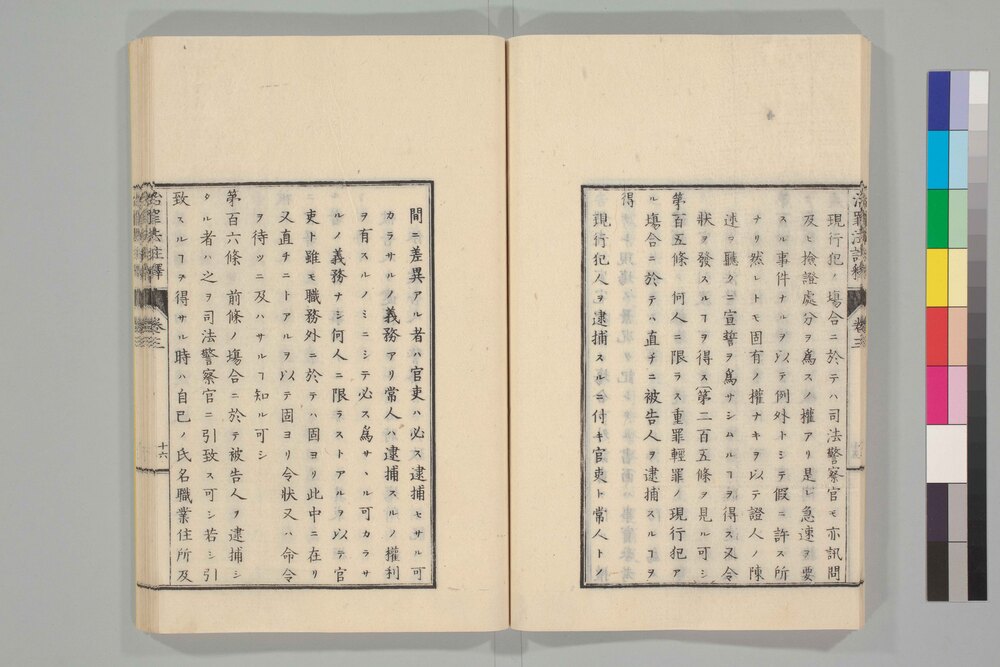 現行犯ノ塲合ニ於テハ司法警察官モ亦訊問
及ヒ檢證處分ヲ爲スノ權アリ是レ急速ヲ要
スル事件ナルヲ以テ例外トシテ假ニ許ス所
ナリ然レトモ固有ノ權ナキヲ以テ證人ノ陳
述ヲ聽クニ宣誓ヲ爲サシムルヿヲ得ス又令
狀ヲ發スルヿヲ得ス(第二百五條ヲ見ル可シ
第百五條 何人ニ限ラス重罪輕罪ノ現行犯ア
ル塲合ニ於テハ直チニ被告人ヲ逮捕スルヿヲ
得
現行犯人ヲ逮捕スルニ付キ官吏ト常人トノ
治罪法註釋 卷三
間ニ差異アル者ハ官吏ハ必ス逮捕セサル可
カラサルノ義務アリ常人ハ逮捕スルノ權利
ヲ有スルノミニシテ必ス爲サヽル可カラサ
ルノ義務ナシ何人ニ限ラストアルヲ以テ官
吏ト雖モ職務外ニ於テハ固ヨリ此中ニ在リ
又直チニトアルヲ以テ固ヨリ令狀又ハ命令
ヲ待ツニ及ハサルヿ知ル可シ
第百六條 前條ノ塲合ニ於テ被告人ヲ逮捕シ
タル者ハ之ヲ司法警察官ニ引致ス可シ若シ引
致スルヿヲ得サル時ハ自己ノ氏名職業住所及
治罪法註釋 卷三 十六